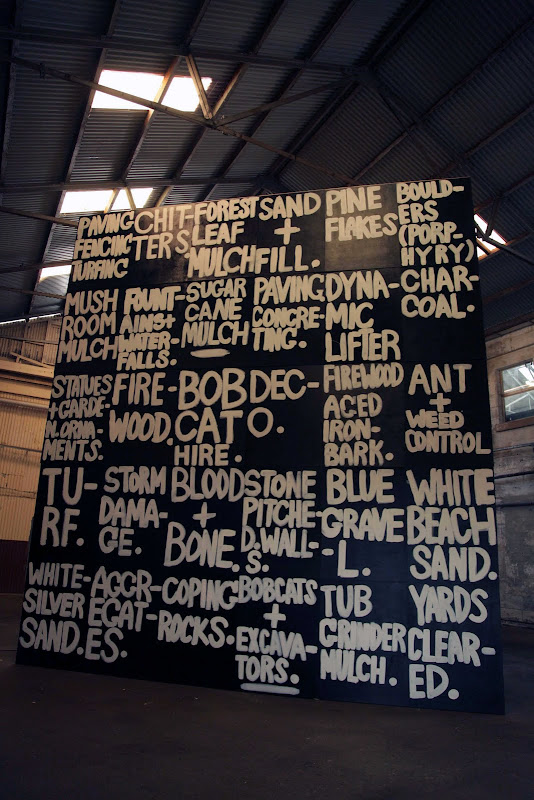 PAVING
FENCING
TURFING
CHIT-
TERS.
FOREST
LEAF
MULCH
SAND
+
FILL.
PINE
FLAKES
BOULD-
ERS
(PORP-
HYRY)
MUSH
ROOM
MULCH
FOUNT-
AINS+
WATER-
FALLS.
SUGAR
CANE
MULCH
PAVING
CONCRE-
TING.
DYNA-
MIC
LIFTER
CHAR-
COAL.
STATUES
+GARDE-
N.ORNA-
MENTS.
FIRE-
WOOD.
BOB
CAT
HIRE.
DEC-
O.
FIREWOOD
ACED
IRON-
BARK.
ANT
+
WEED
CONTROL
TU-
RF.
STORM
DAMA-
GE.
BLOOD
+
BONE.
STONE
PITCHE-
D.WALL-
S.
BLUE
GRAVE-
L.
WHITE
BEACH
SAND.
WHITE-
SILVER
SAND.
AGGR-
EGAT-
ES.
COPING
ROCKS.
BOBCATS
+
EXCAVA-
TORS.
TUB
GRINDER
MULCH.
YARDS
CLEAR-
ED.